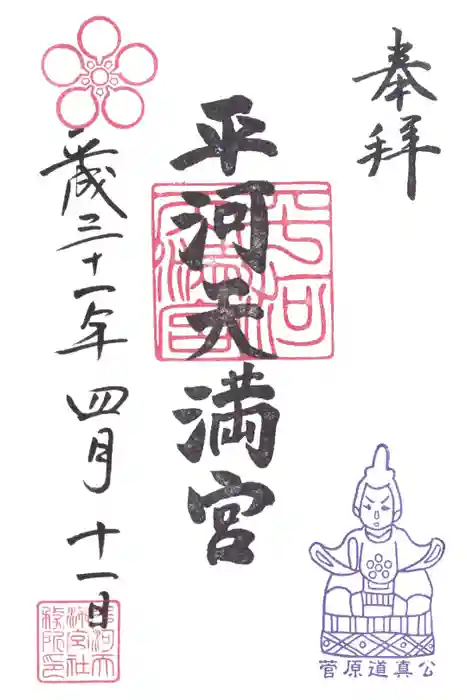 奉拝
平河天満宮
平成三十一年 四月 十一日
菅原道真公
平河天満宮
平河天満宮社務所印